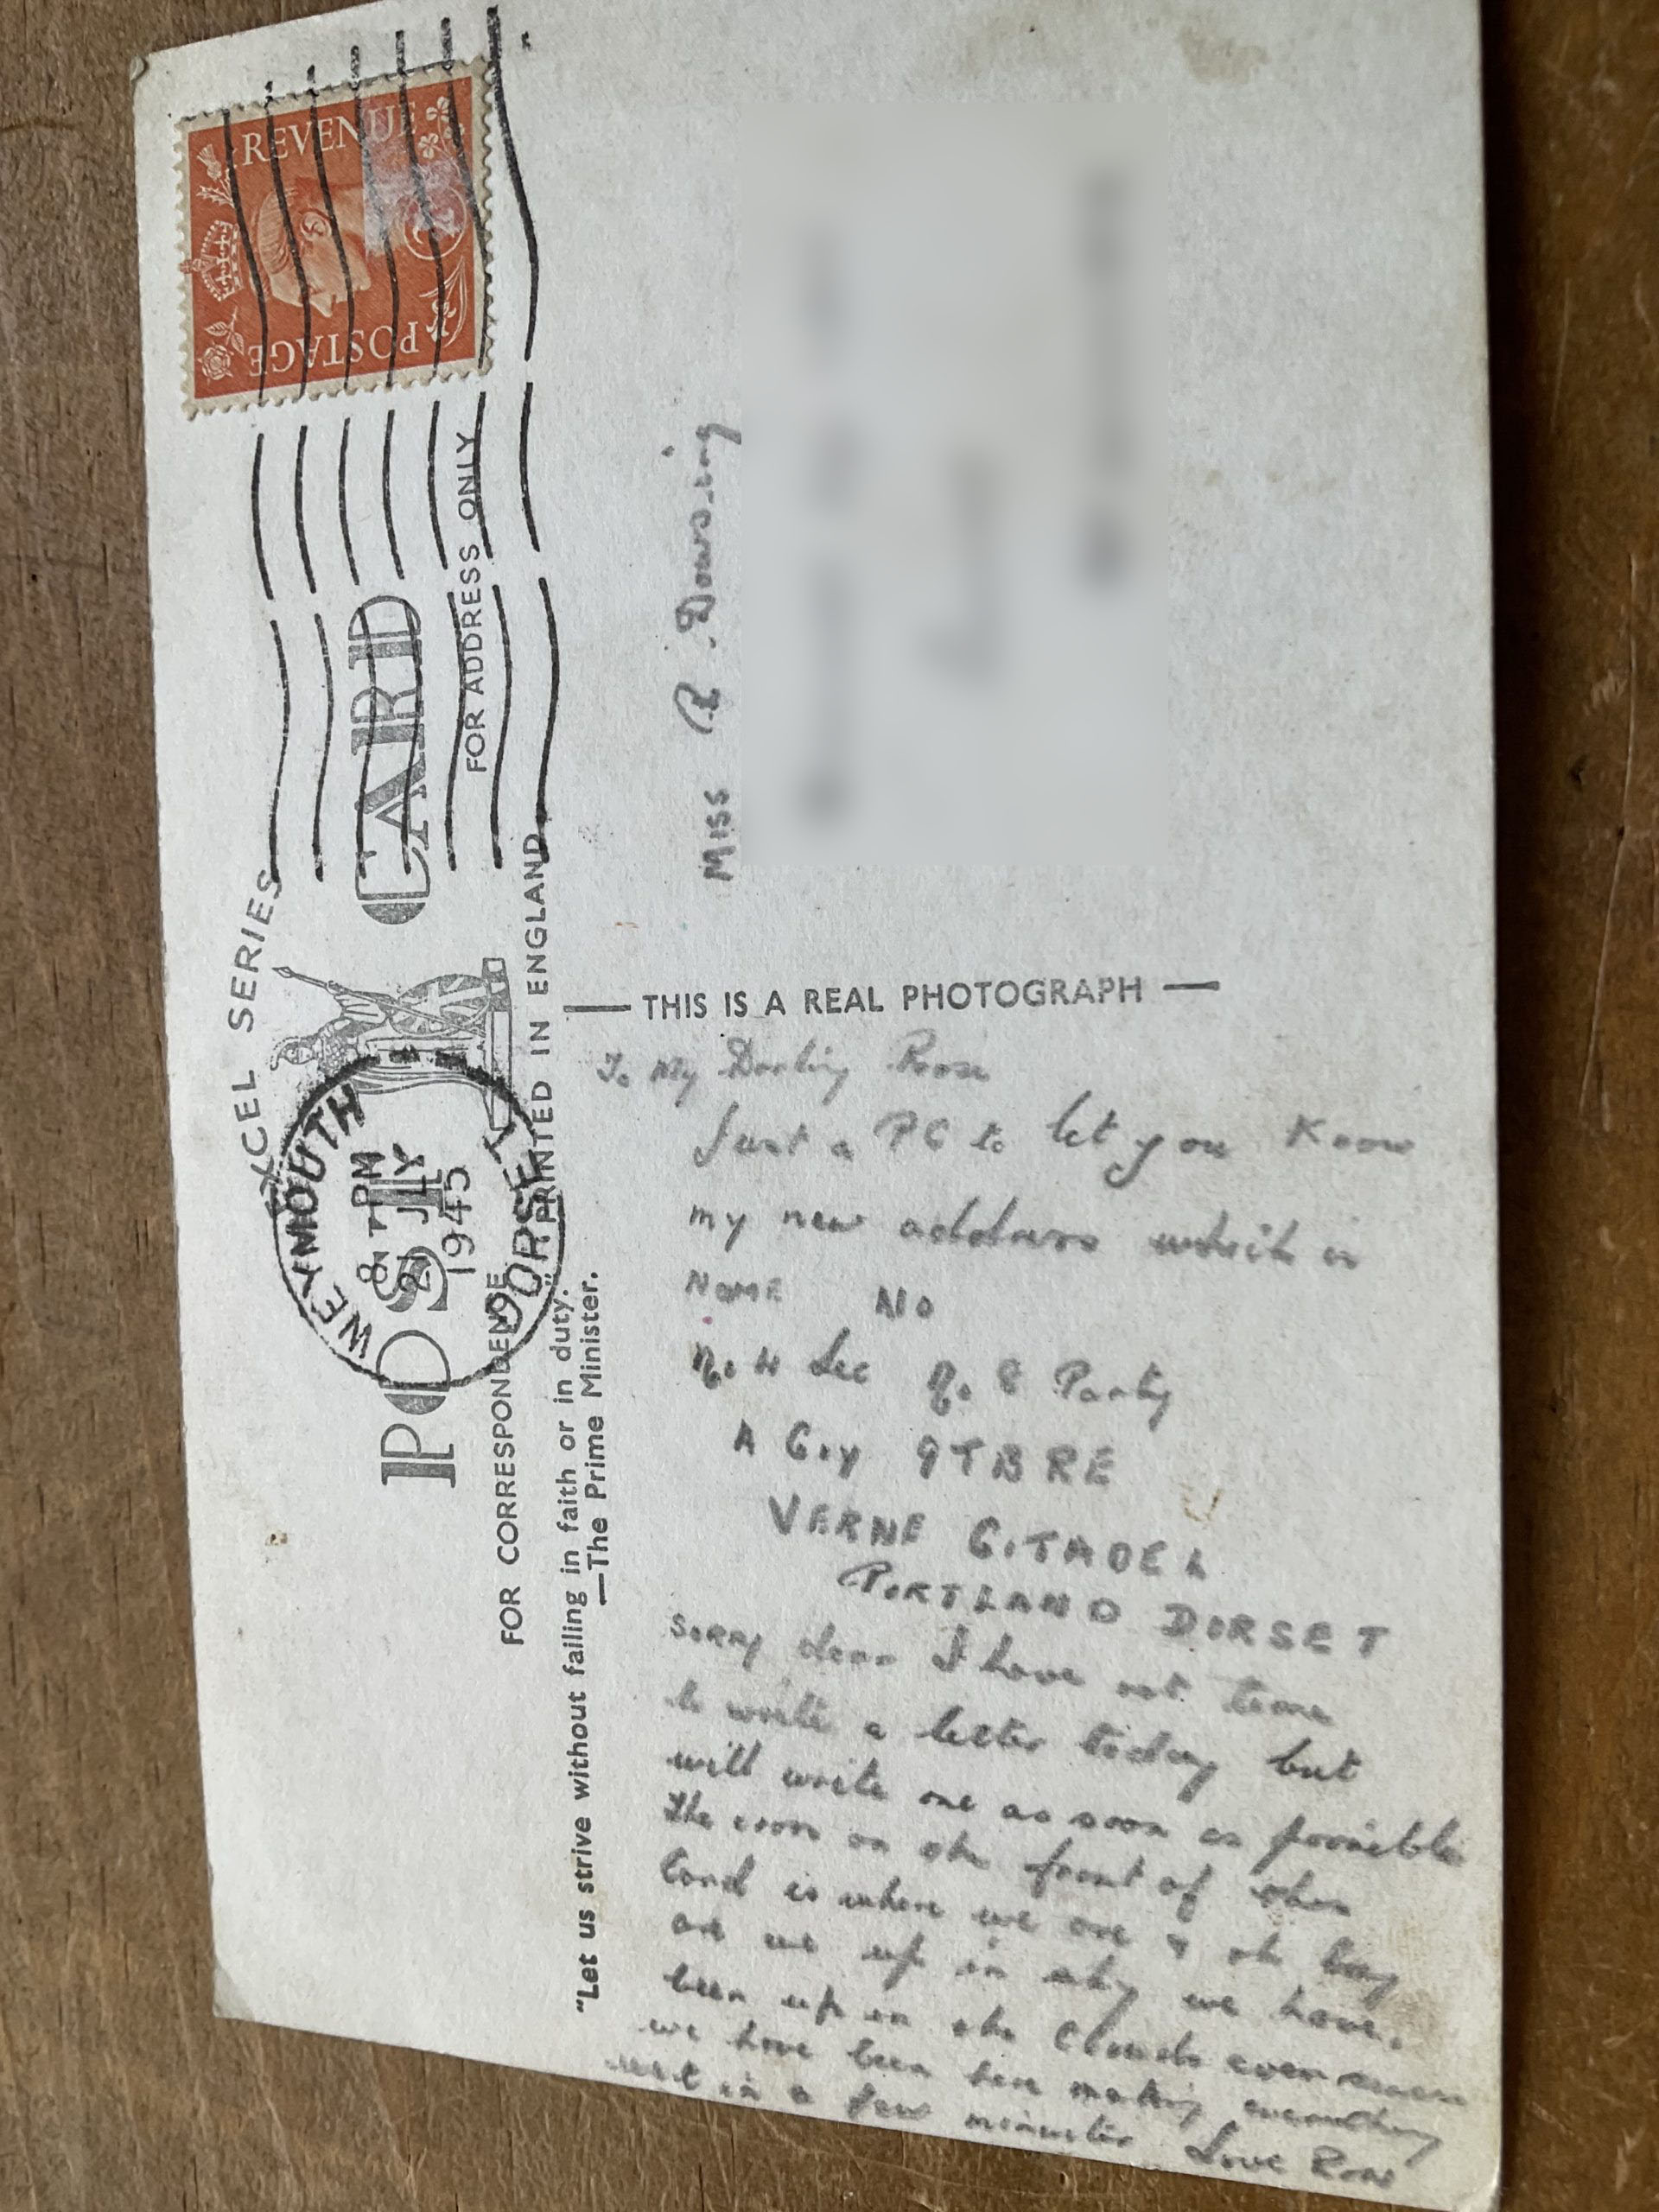 EXCEL SERIES
POST CARD
FOR CORRESPONDENCE
FOR ADDRESS ONLY
PRINTED IN ENGLAND
"Let us strive without failing in faith or in duty."
—The Prime Minister.
WEYMOUTH
8 - PM
21 JLY
1945
DORSET
REVENUE
POSTAGE
2
THIS IS A REAL PHOTOGRAPH
Miss R. Dowsing
To My Darling Rose
Just a PC to let you Know
my new address which is
NAME NO
No 4 Sec No 8 Party
A Coy 9TB RE
VERNE CITADEL
PORTLAND DORSET
Sorry dear I have not time
to write a letter today but
will write one as soon as possible
The on the front of this
Card is where we are & oh boy
are we up in sky we have
been up in the Clouds ever since
we have been here making everything
wet in a few minutes Love Ron